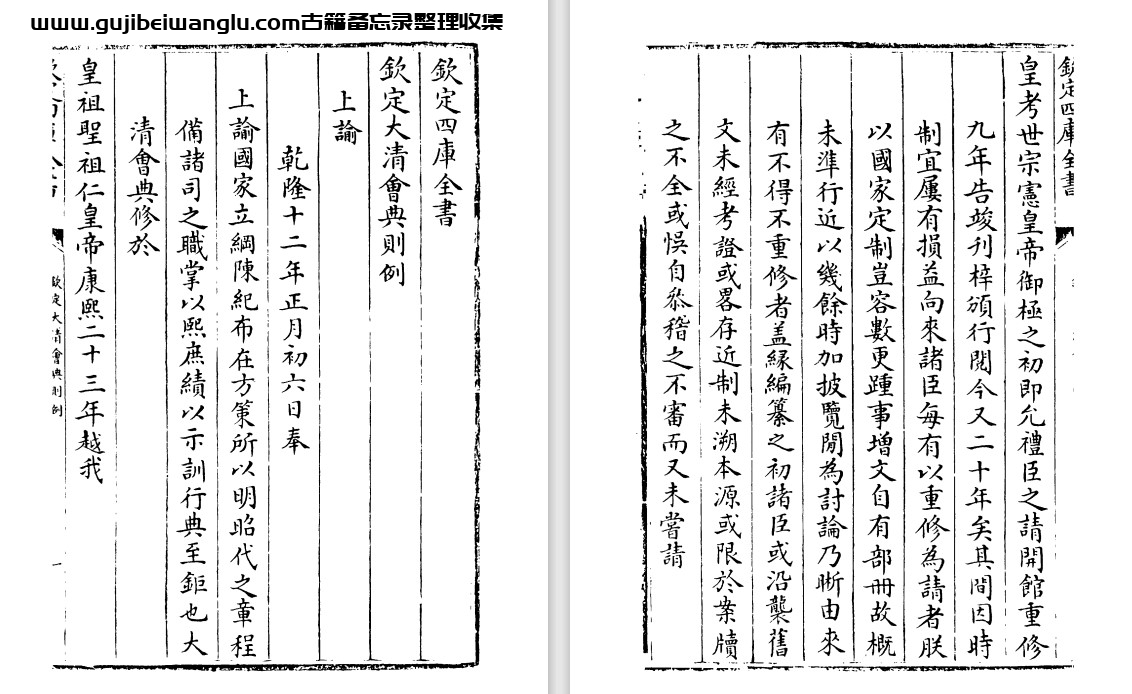 www.gujibeiwanglu.com古籍备忘录整理收集
欽定四庫全書
欽定大清會典則例
上諭
乾隆十二年正月初六日奉
上諭國家立綱陳紀布在方策所以明昭代之章程
備諸司之職掌以熙庶績以示訓行典至鉅也大
清會典修於
皇祖聖祖仁皇帝康熙二十三年越我
欽定大清會典則例
一
欽定四庫全書
皇考世宗憲皇帝御極之初即允禮臣之請開館重修
九年告竣刋梓頒行閱今又二十年矣其間因時
制宜屢有損益向來諸臣每有以重修為請者朕
以國家定制豈容數更踵事增文自有部冊故概
未準行近以幾餘時加披覽閒為討論乃晰由來
有不得不重修者盖緣編纂之初諸臣或沿襲舊
文未經考證或畧存近制未溯本源或限於案牘
之不全或悞自叅稽之不審而又未嘗請